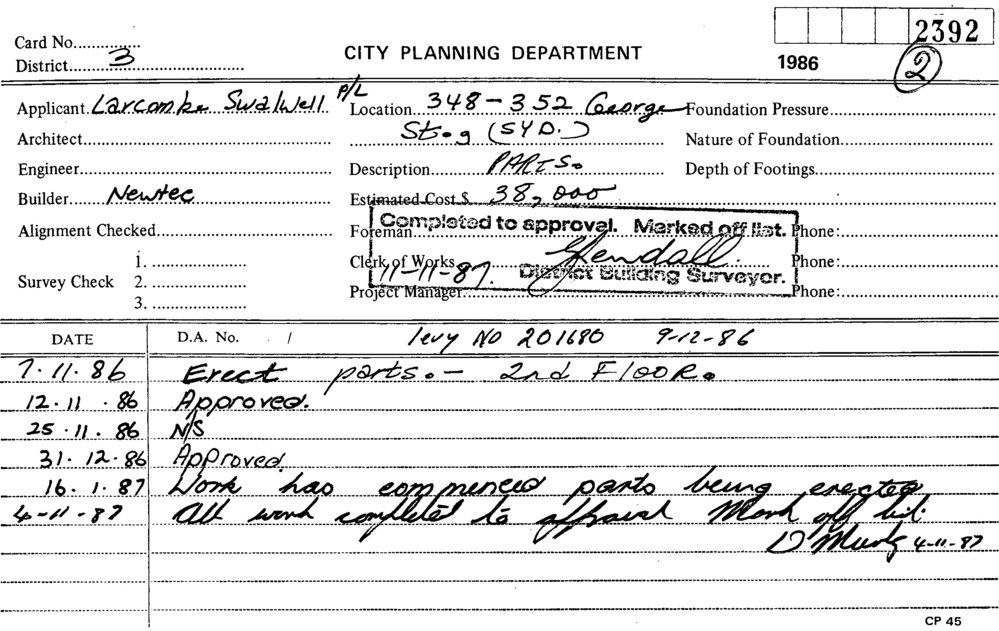 Card No............... 2392
District 3 CITY PLANNING DEPARTMENT 1986 2
Applicant Larcombe Swalwell P/L Location 348-352 George Foundation Pressure
Architect St.g (SYD.) Nature of Foundation
Engineer Description PARTS. Depth of Footings
Builder Newtec Estimated Cost $ 38,000
Completed to approval. Marked off list.
Alignment Checked Foreman Phone:
1. Clerk of Works Phone:
11-11-87. District Building Surveyor.
Survey Check 2.
Project Manager Phone:
3.
DATE D.A. No. / levy No 201680 9-12-86
7.11.86 Erect parts. - 2nd Floor.
12.11.86 Approved.
25.11.86 N/S
31.12.86 Approved.
16.1.87 Work has commenced parts being erected
4-11-87 All work completed to approval Mark off list.
4-11-87
CP 45